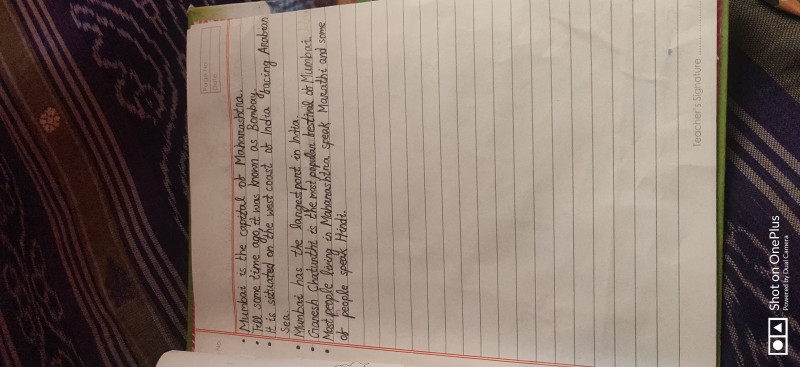 Page No.
Date:
• Mumbai is the capital of Maharashtra.
• Tell some time ago, it was known as Bombay.
• It is situated on the west coast of India facing Arabian
Sea.
• Mumbai has the largest port in India.
• Ganesh Chaturthi is the most popular festival of Mumbai.
• Most people living in Maharashtra speak Marathi and some
of people speak Hindi.
Teacher's Signature
Shot on OnePlus
Powered by Dual Camera